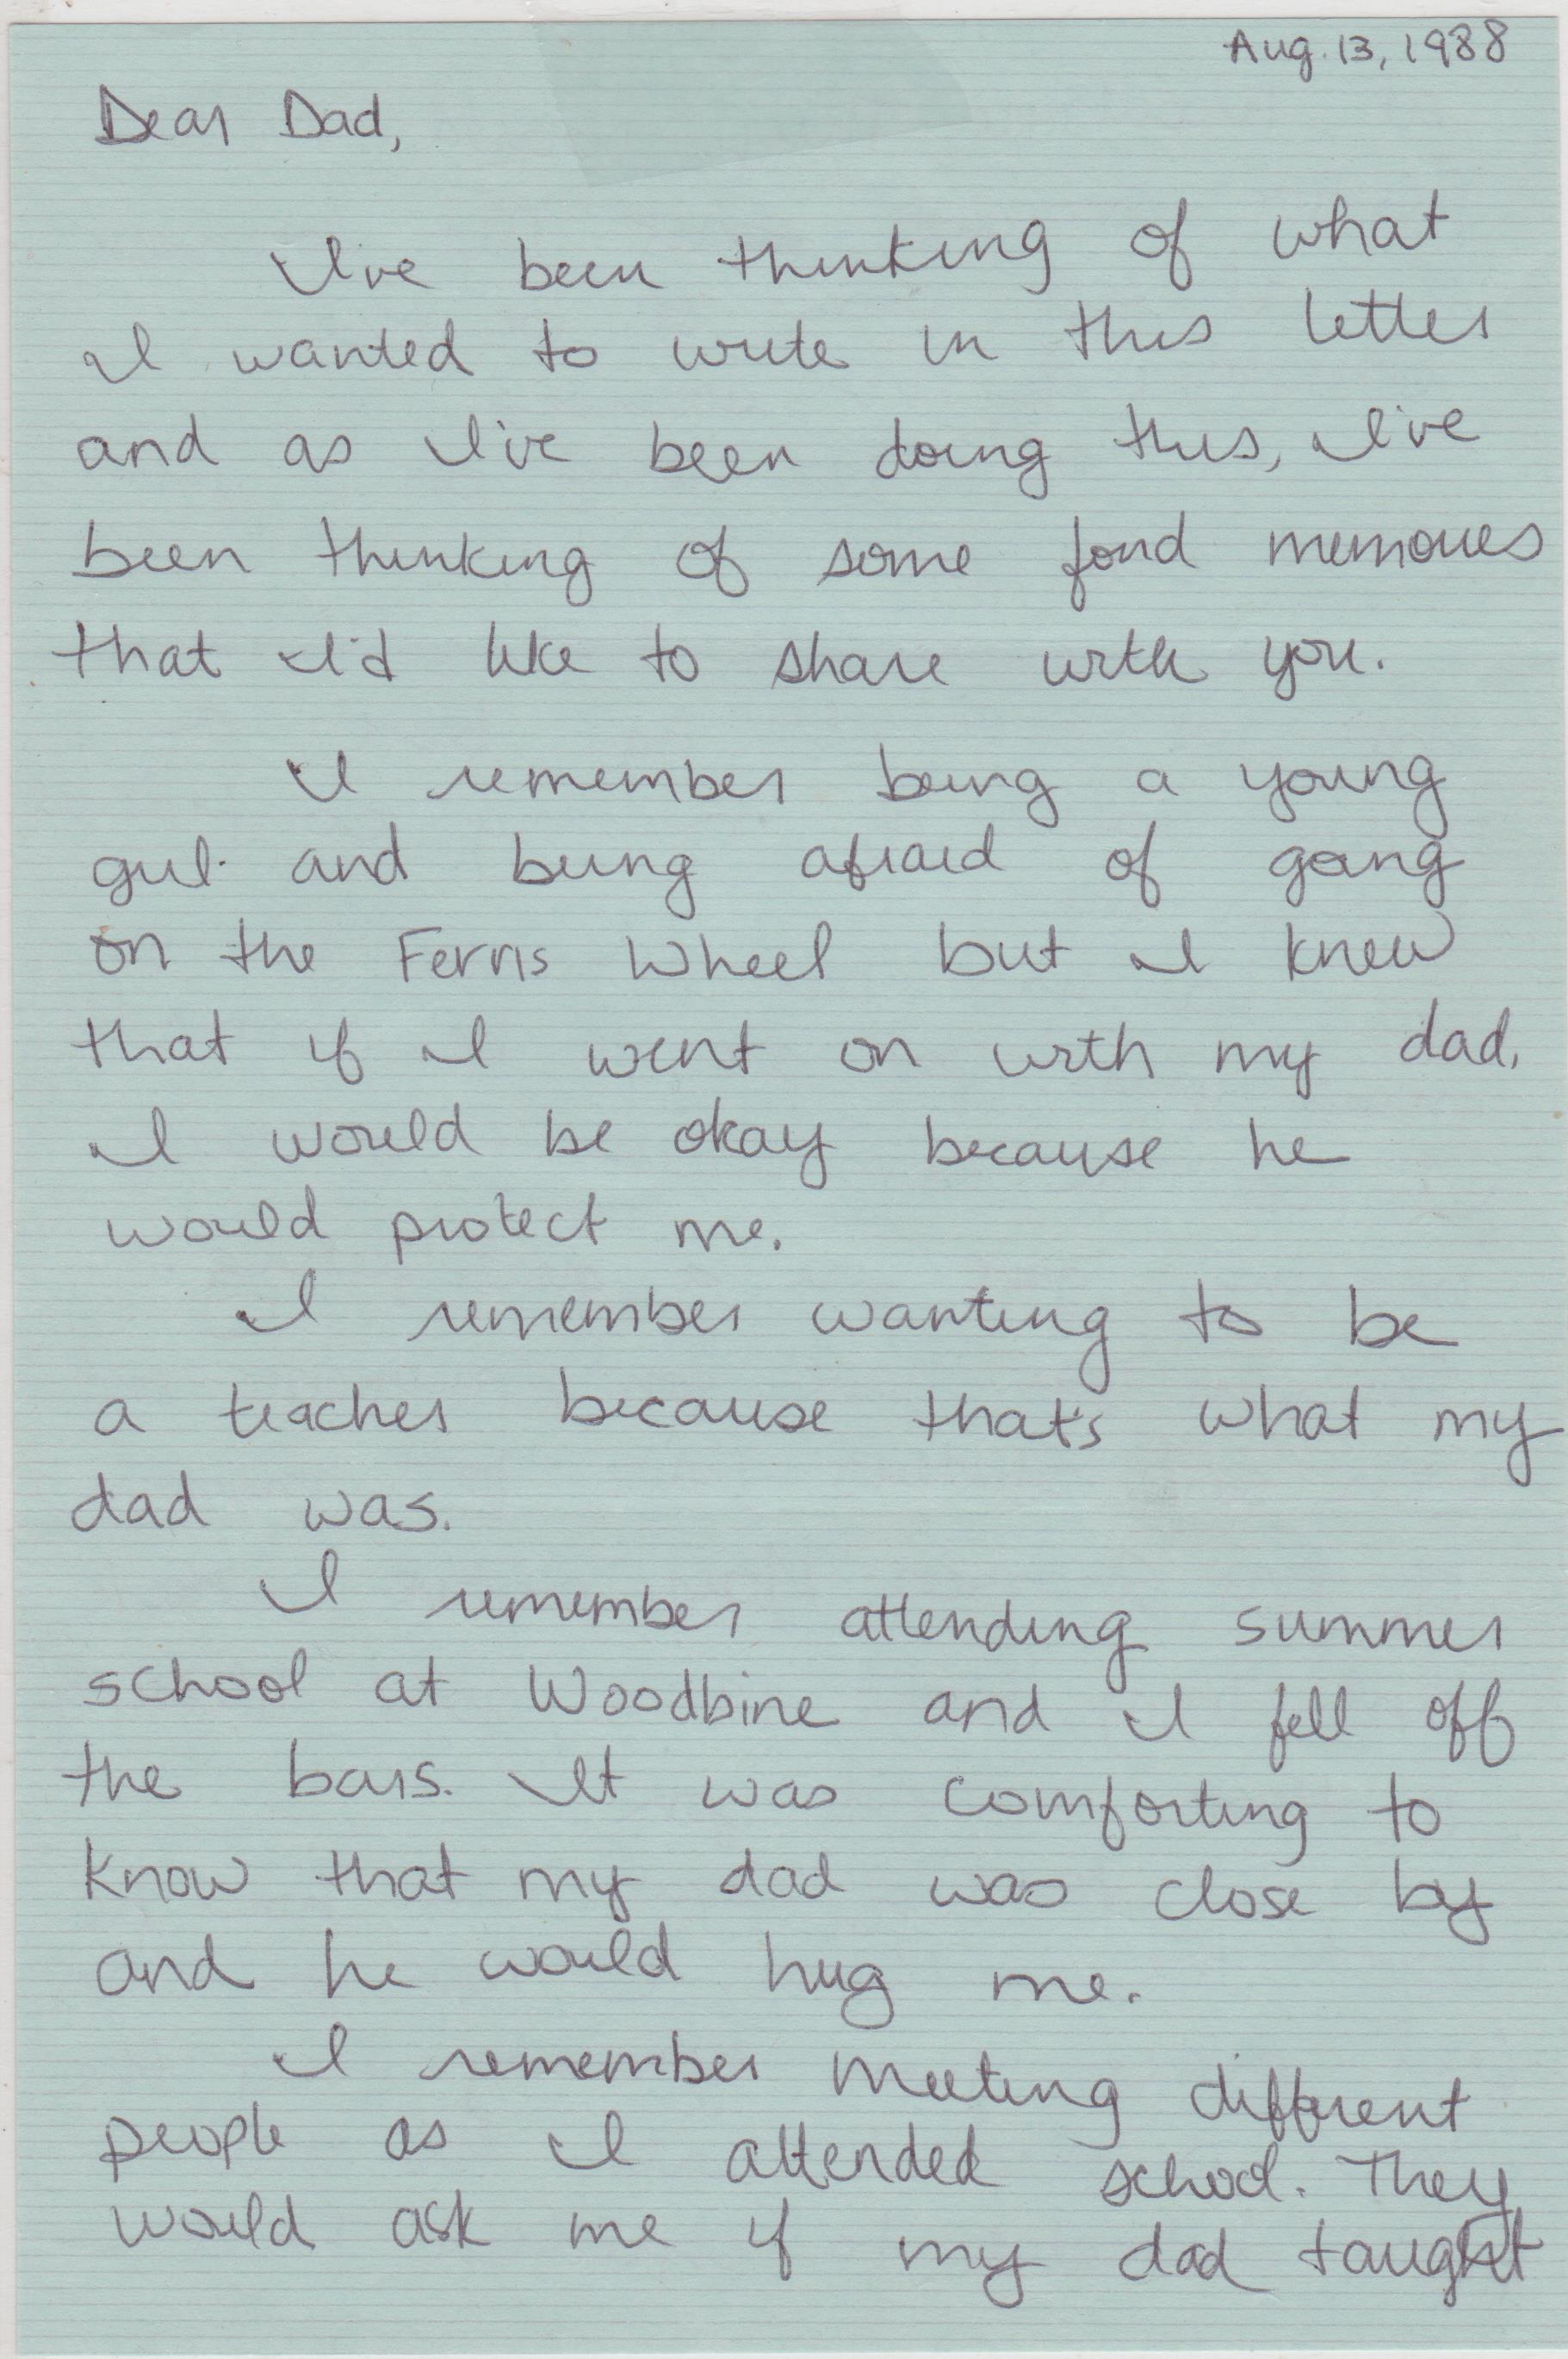 Aug. 13, 1988
Dear Dad,
I've been thinking of what
I wanted to write in this letter
and as I've been doing this, I've
been thinking of some fond memories
that I'd like to share with you.
I remember being a young
girl and being afraid of going
on the Ferris Wheel but I knew
that if I went on with my dad,
I would be okay because he
would protect me.
I remember wanting to be
a teacher because that's what my
dad was.
I remember attending summer
school at Woodbine and I fell off
the bars. It was comforting to
know that my dad was close by
and he would hug me.
I remember meeting different
people as I attended school. They
would ask me if my dad taught